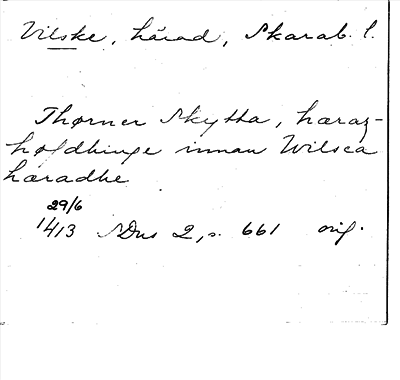 Vilske, härad, Skarab. l.
Thørner Skytta, hæraz-
høfdhinge innan Wilsca
hæradhe
29/6
1413 SDns 2, s. 661 orig.